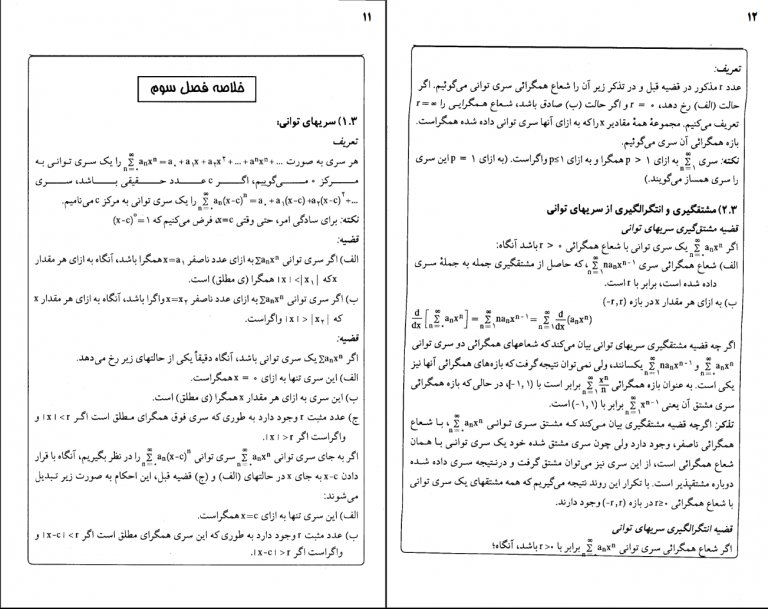 ۱۱
خلاصه فصل سوم
۱.۳) سریهای توانی:
تعریف
هر سری به صورت ...+aₙxⁿ+...+a₀+a₁x+a₂x² = ∑_{n=0}^{∞} aₙxⁿ را یک سری توانی به
مرکز ۰ می‌گوییم، اگر c عدد حقیقی باشد، سری
...+a₀+a₁(x-c)+a₂(x-c)² = ∑_{n=0}^{∞} aₙ(x-c)ⁿ را یک سری توانی به مرکز c می‌نامیم.
نکته: برای سادگی امر، حتی وقتی x=c، فرض می‌کنیم که (x-c)⁰=۱
قضیه:
الف) اگر سری توانی ∑aₙxⁿ به ازای عدد ناصفر x=a₁ همگرا باشد، آنگاه به ازای هر مقدار
x که |x|<|x₁| همگرا (ی مطلق) است.
ب) اگر سری توانی ∑aₙxⁿ به ازای عدد ناصفر x=x₂ واگرا باشد، آنگاه به ازای هر مقدار x
که |x|>|x₂| واگراست.
قضیه:
اگر ∑aₙxⁿ یک سری توانی باشد، آنگاه دقیقاً یکی از حالتهای زیر رخ می‌دهد.
الف) این سری تنها به ازای x = ۰ همگراست.
ب) این سری به ازای هر مقدار x همگرا (ی مطلق) است.
ج) عدد مثبت r وجود دارد به طوری که سری فوق همگرای مطلق است اگر |x|<r و
واگراست اگر |x|>r.
اگر به جای سری توانی ∑_{n=0}^{∞} aₙxⁿ سری توانی ∑_{n=0}^{∞} aₙ(x-c)ⁿ را در نظر بگیریم، آنگاه با قرار
دادن x-c به جای x در حالتهای (الف) و (ج) قضیه قبل، این احکام به صورت زیر تبدیل
می‌شوند:
الف) این سری تنها به ازای x=c همگراست.
ب) عدد مثبت r وجود دارد به طوری که این سری همگرای مطلق است اگر |x-c|<r و
واگراست اگر |x-c|>r.
۱۲
تعریف:
عدد r مذکور در قضیه قبل و در تذکر زیر آن را شعاع همگرائی سری توانی می‌گوئیم. اگر
حالت (الف) رخ دهد، r = ۰ و اگر حالت (ب) صادق باشد، شعاع همگرایی را r=∞
تعریف می‌کنیم. مجموعهٔ همهٔ مقادیر x را که به ازای آنها سری توانی داده شده همگراست.
بازه همگرائی آن سری می‌گوئیم.
نکته: سری ∑_{n=1}^{∞} به ازای p > ۱ همگرا و به ازای p≤۱ واگراست. (به ازای p = ۱ این سری
را سری همساز می‌گویند.)
۲.۳) مشتقگیری و انتگرالگیری از سریهای توانی
قضیه مشتق‌گیری سریهای توانی
اگر ∑_{n=0}^{∞} aₙxⁿ یک سری توانی با شعاع همگرائی r > ۰ باشد آنگاه:
الف) شعاع همگرائی سری ∑_{n=1}^{∞} naₙxⁿ⁻¹، که حاصل از مشتقگیری جمله به جملهٔ سری
داده شده است، برابر با r است.
ب) به ازای هر مقدار x در بازه (-r,r)
d/dx [∑_{n=0}^{∞} aₙxⁿ] = ∑_{n=1}^{∞} naₙxⁿ⁻¹ = ∑_{n=1}^{∞} d/dx (aₙxⁿ)
اگر چه قضیه مشتقگیری سریهای توانی بیان می‌کند که شعاعهای همگرائی دو سری توانی
∑_{n=0}^{∞} aₙxⁿ و ∑_{n=1}^{∞} naₙxⁿ⁻¹ یکسانند، ولی نمی‌توان نتیجه گرفت که بازه‌های همگرائی آنها نیز
یکی است. به عنوان بازه همگرائی ∑_{n=1}^{∞} xⁿ/n برابر است با [-۱,۱)، در حالی که بازه همگرائی
سری مشتق آن یعنی ∑_{n=1}^{∞} xⁿ⁻¹ برابر با (-۱,۱) است.
تذکر: اگرچه قضیه مشتقگیری بیان می‌کند که مشتق سری توانی ∑_{n=0}^{∞} aₙxⁿ، با شعاع
همگرائی ناصفر، وجود دارد ولی چون سری مشتق شده خود یک سری توانی با همان
شعاع همگرائی است، از این سری نیز می‌توان مشتق گرفت و درنتیجه سری داده شده
دوباره مشتقپذیر است. با تکرار این روند نتیجه می‌گیریم که همه مشتقهای یک سری توانی
با شعاع همگرائی r≥۰ در بازه (-r,r) وجود دارند.
قضیه انتگرالگیری سریهای توانی
اگر شعاع همگرائی سری توانی ∑_{n=0}^{∞} aₙxⁿ برابر با r>۰ باشد، آنگاه: